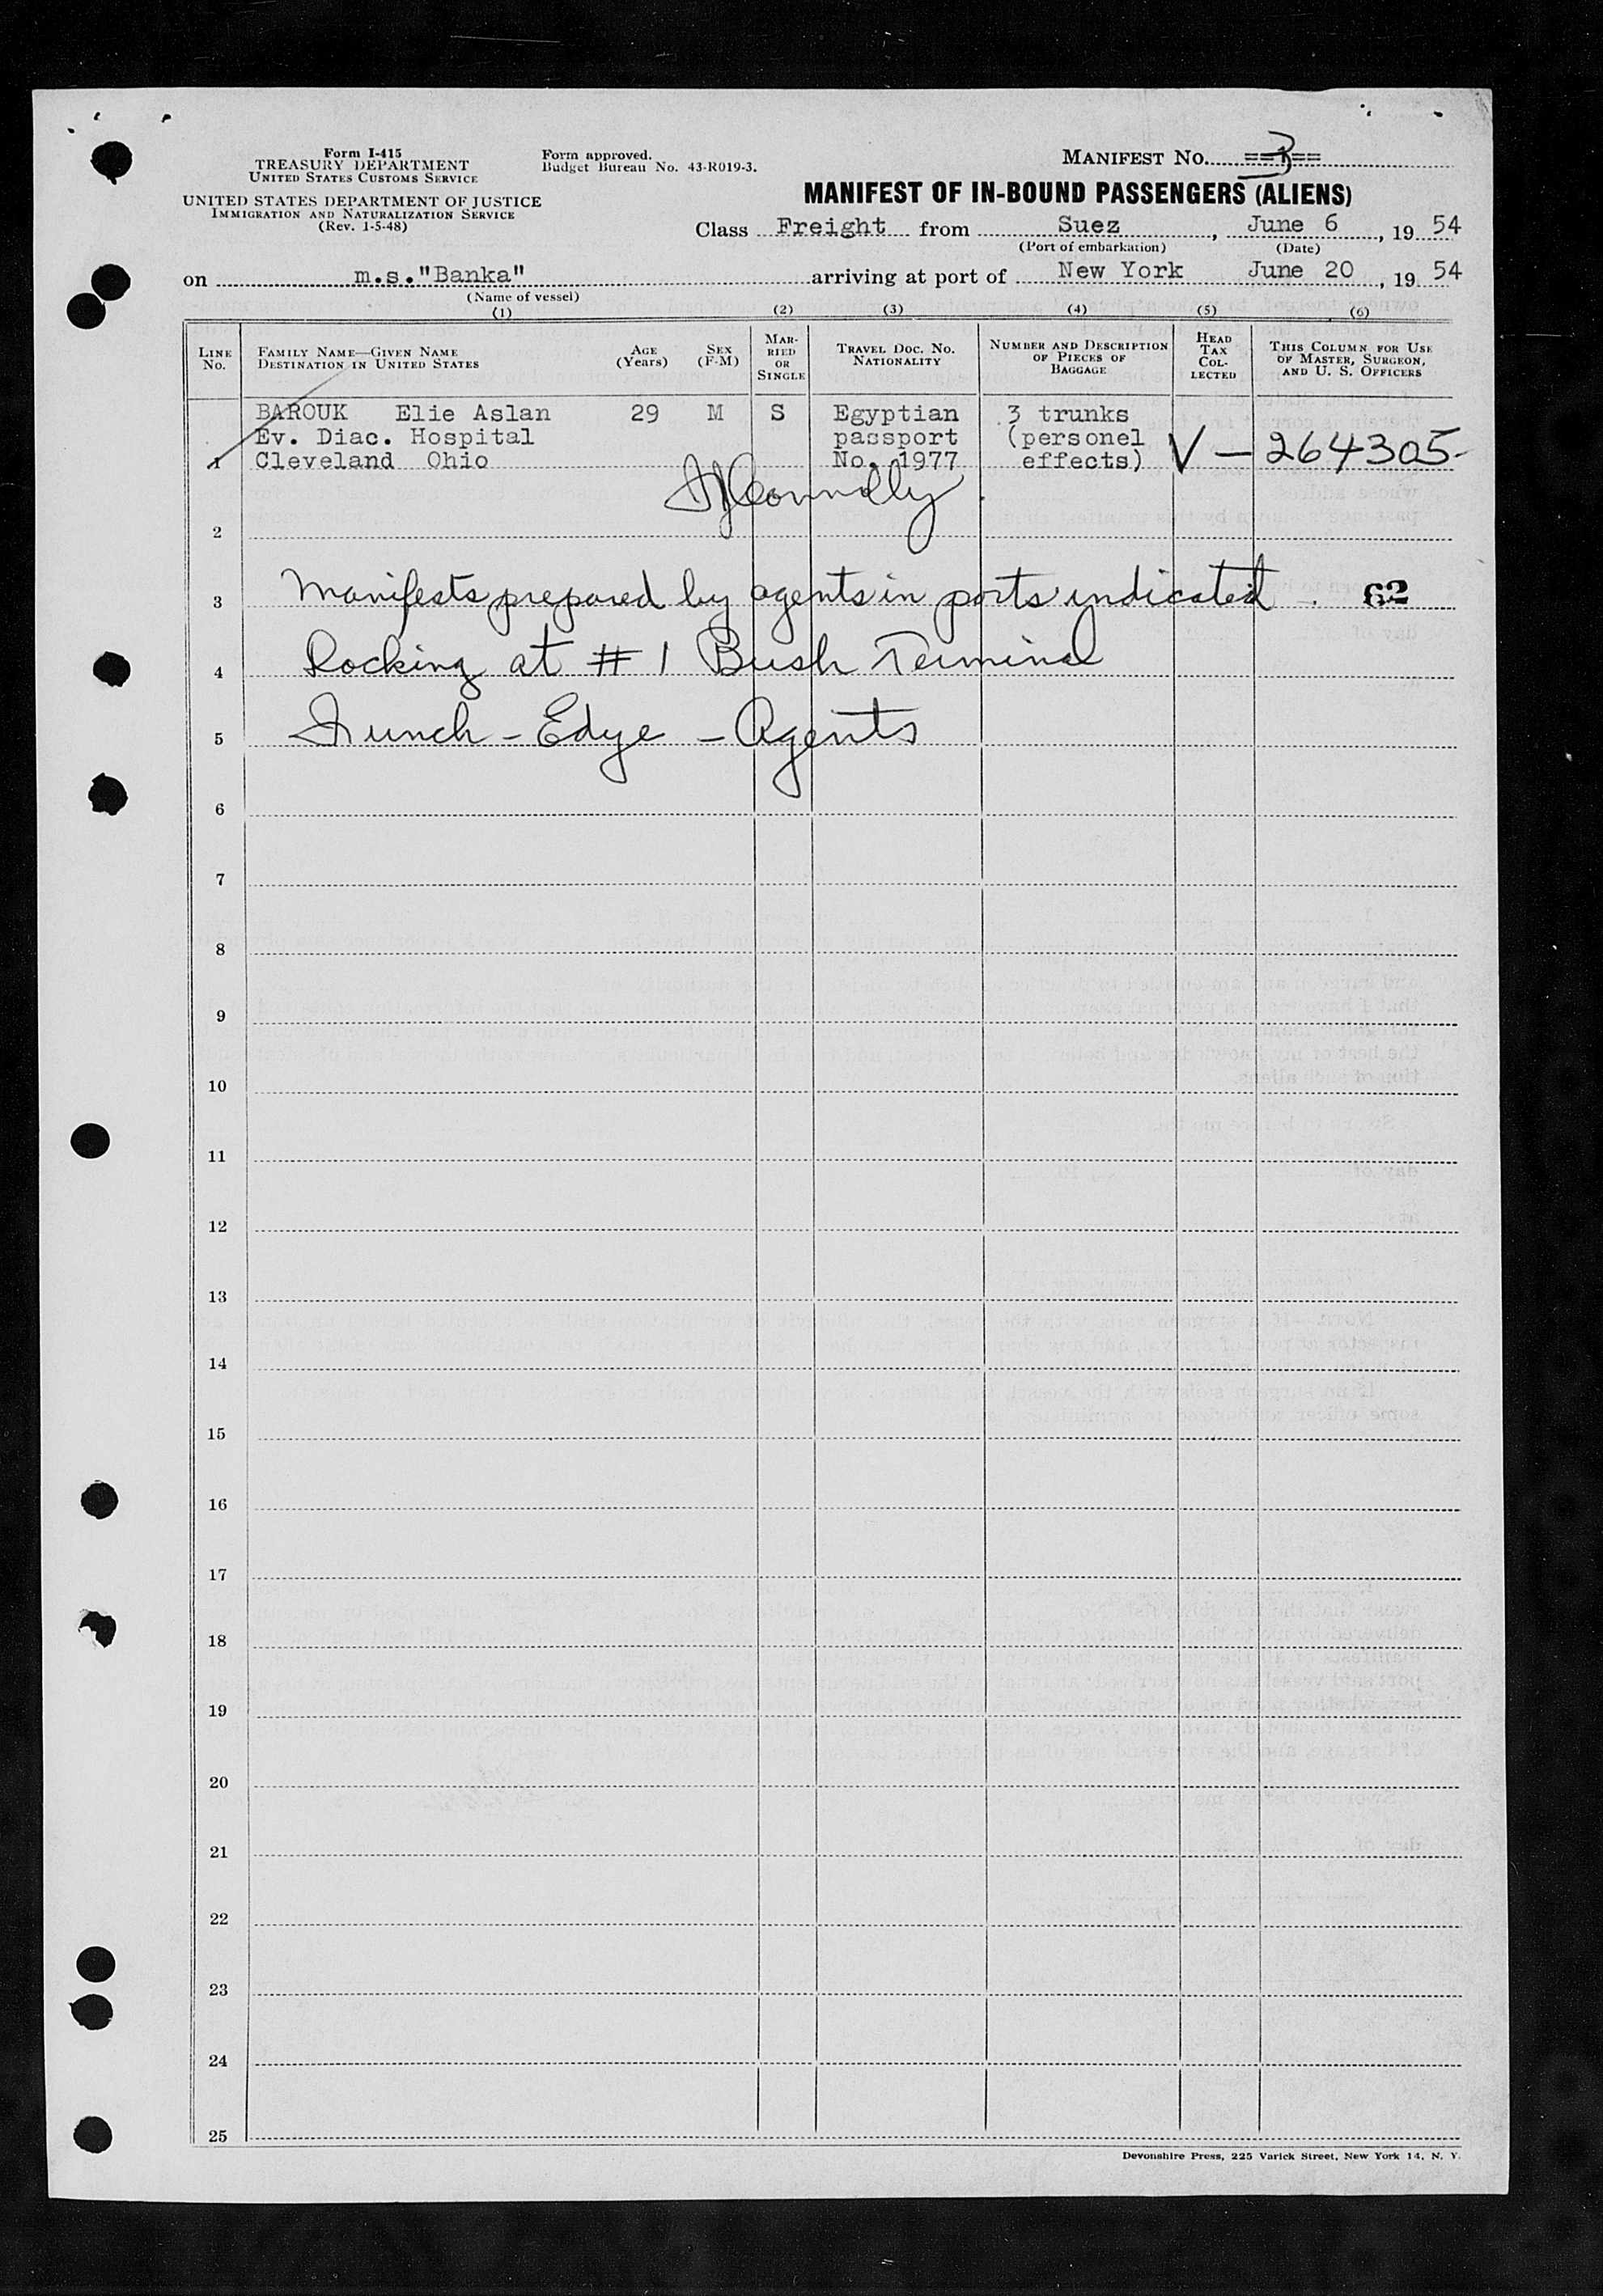 Form I-415
TREASURY DEPARTMENT
UNITED STATES CUSTOMS SERVICE
UNITED STATES DEPARTMENT OF JUSTICE
IMMIGRATION AND NATURALIZATION SERVICE
(Rev. 1-5-48)
Form approved.
Budget Bureau No. 43-R019-3.
MANIFEST NO. ==3==
MANIFEST OF IN-BOUND PASSENGERS (ALIENS)
Class Freight from Suez, June 6, 1954
(Port of embarkation) (Date)
on m.s."Banka" arriving at port of New York June 20, 1954
(Name of vessel)
(1) (2) (3) (4) (5) (6)
LINE NO.
FAMILY NAME—GIVEN NAME
DESTINATION IN UNITED STATES
AGE (Years)
SEX (F-M)
MARRIED OR SINGLE
TRAVEL DOC. NO.
NATIONALITY
NUMBER AND DESCRIPTION
OF PIECES OF
BAGGAGE
HEAD
TAX
COL-
LECTED
THIS COLUMN FOR USE
OF MASTER, SURGEON,
AND U. S. OFFICERS
BAROUK Elie Aslan 29 M S Egyptian 3 trunks
Ev. Diac. Hospital passport (personel
1 Cleveland Ohio No. 1977 effects) V — 264305-
Connolly
2
3 Manifests prepared by agents in ports indicated 62
4 Docking at # 1 Bush Terminal
5 Funch - Edye - Agents
6
7
8
9
10
11
12
13
14
15
16
17
18
19
20
21
22
23
24
25
Devonshire Press, 225 Varick Street, New York 14, N. Y.